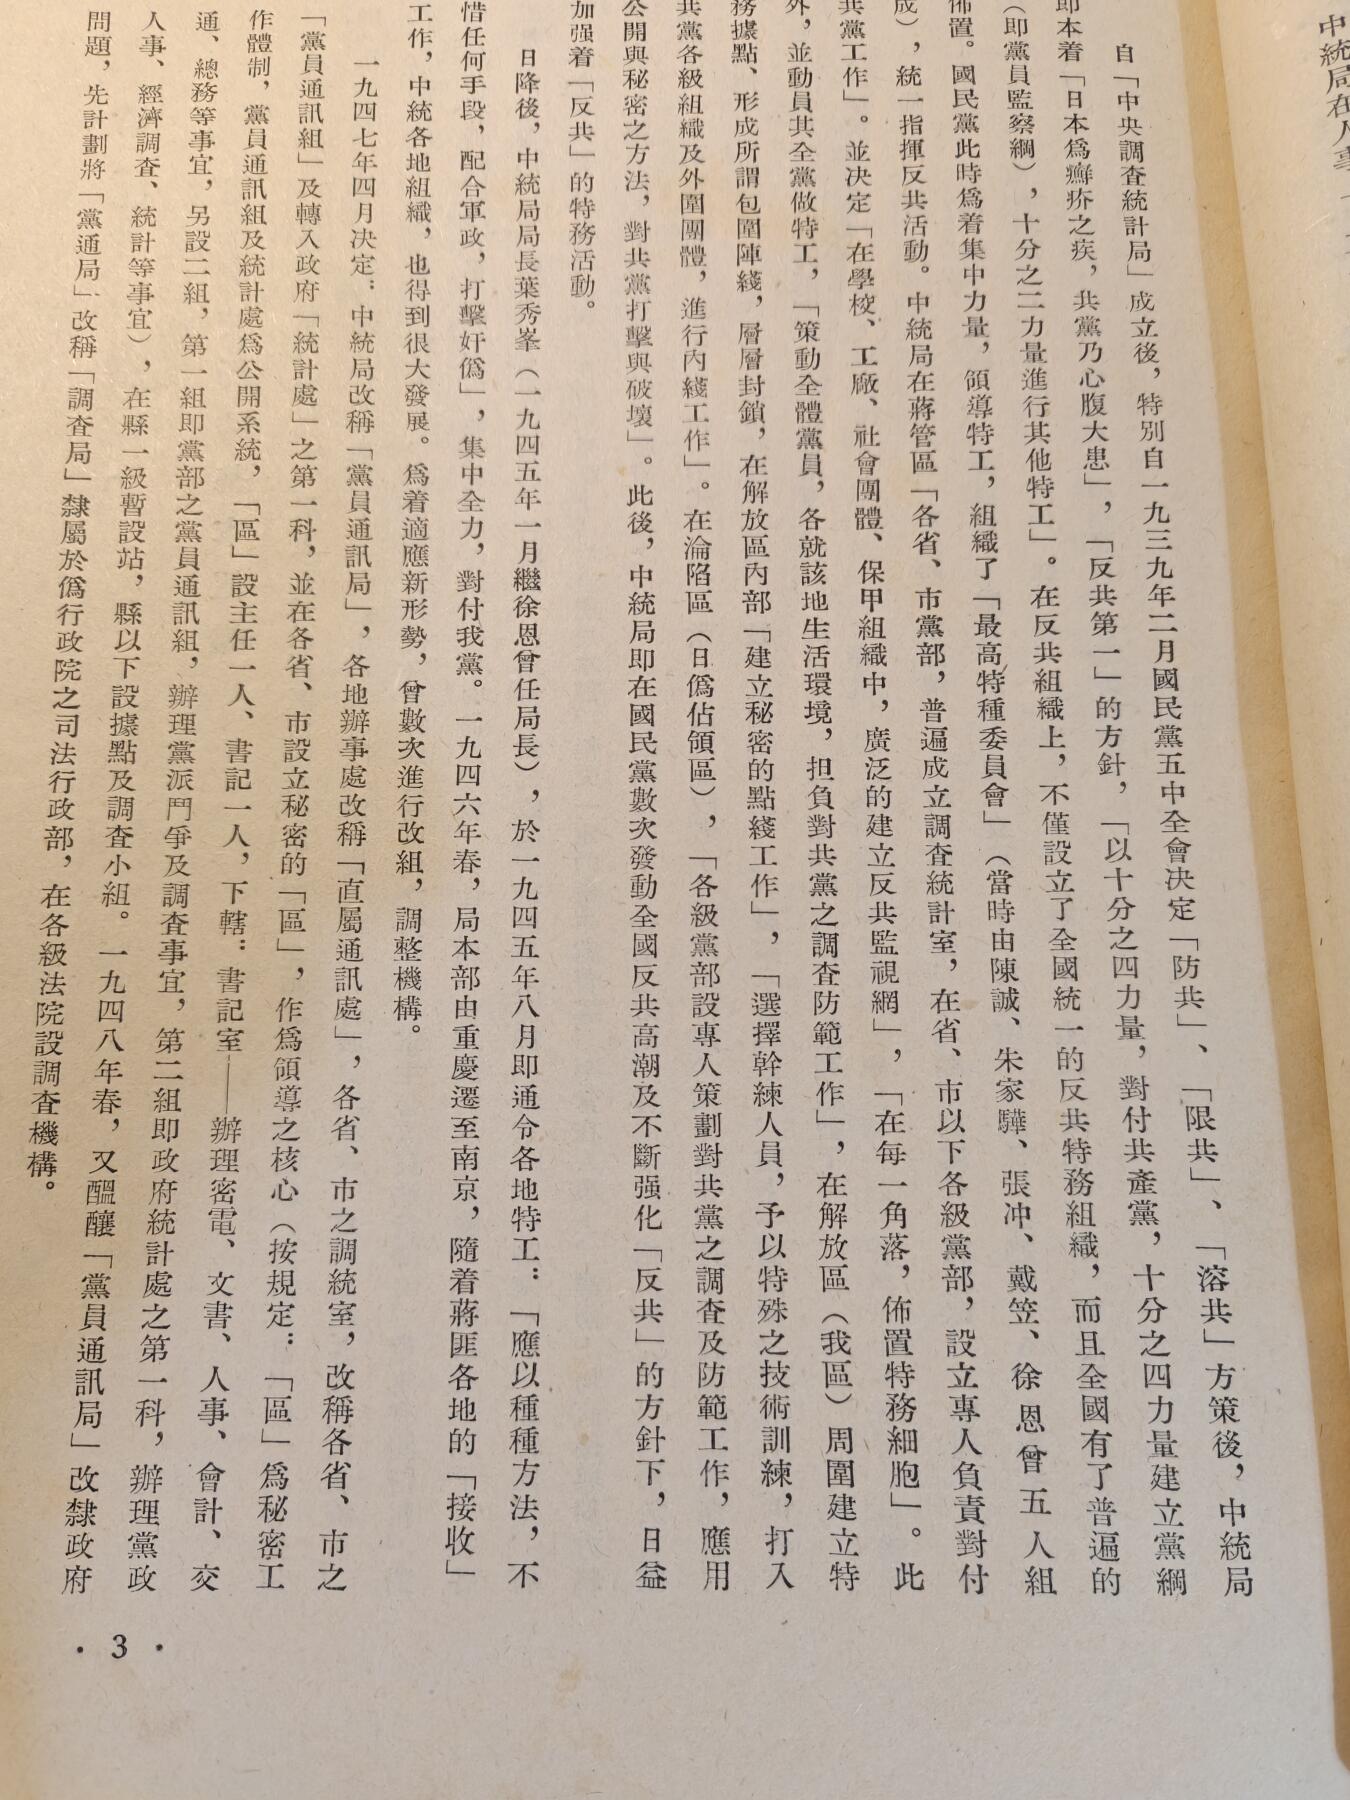 中統局在人事
自「中央調查統計局」成立後，特別自一九三九年二月國民黨五中全會決定「防共」、「限共」、「溶共」方策後，中統局
即本着「日本爲癬疥之疾，共黨乃心腹大患」，「反共第一」的方針，「以十分之四力量，對付共產黨，十分之四力量建立黨網
（即黨員監察網），十分之二力量進行其他特工」。在反共組織上，不僅設立了全國統一的反共特務組織，而且全國有了普遍的
佈置。國民黨此時爲着集中力量，領導特工，組織了「最高特種委員會」（當時由陳誠、朱家驊、張冲、戴笠、徐恩曾五人組
成），統一指揮反共活動。中統局在蔣管區「各省、市黨部，普遍成立調查統計室，在省、市以下各級黨部，設立專人負責對付
共黨工作」。並決定「在學校、工廠、社會團體、保甲組織中，廣泛的建立反共監視網」，「在每一角落，佈置特務細胞」。此
外，並動員其全黨做特工，「策動全體黨員，各就該地生活環境，担負對共黨之調查防範工作」，在解放區（我區）周圍建立特
務據點、形成所謂包圍陣綫，層層封鎖，在解放區內部「建立秘密的點綫工作」，「選擇幹練人員，予以特殊之技術訓練，打入
共黨各級組織及外圍團體，進行內綫工作」。在淪陷區（日僞佔領區），「各級黨部設專人策劃對共黨之調查及防範工作，應用
公開與秘密之方法，對共黨打擊與破壞」。此後，中統局即在國民黨數次發動全國反共高潮及不斷强化「反共」的方針下，日益
加强着「反共」的特務活動。
日降後，中統局局長葉秀峯（一九四五年一月繼徐恩曾任局長），於一九四五年八月即通令各地特工：「應以種種方法，不
惜任何手段，配合軍政，打擊奸僞」，集中全力，對付我黨。一九四六年春，局本部由重慶遷至南京，隨着蔣匪各地的「接收」
工作，中統各地組織，也得到很大發展。爲着適應新形勢，曾數次進行改組，調整機構。
一九四七年四月决定：中統局改稱「黨員通訊局」，各地辦事處改稱「直屬通訊處」，各省、市之調統室，改稱各省、市之
「黨員通訊組」及轉入政府「統計處」之第一科，並在各省、市設立秘密的「區」，作爲領導之核心（按規定：「區」爲秘密工
作體制，黨員通訊組及統計處爲公開系統，「區」設主任一人、書記一人，下轄：書記室——辦理密電、文書、人事、會計、交
通、總務等事宜，另設二組，第一組即黨部之黨員通訊組，辦理黨派鬥爭及調查事宜，第二組即政府統計處之第一科，辦理黨政
人事、經濟調查、統計等事宜），在縣一級暫設站，縣以下設據點及調查小組。一九四八年春，又醞釀「黨員通訊局」改隸政府
問題，先計劃將「黨通局」改稱「調查局」隸屬於僞行政院之司法行政部，在各級法院設調查機構。
• 3 •